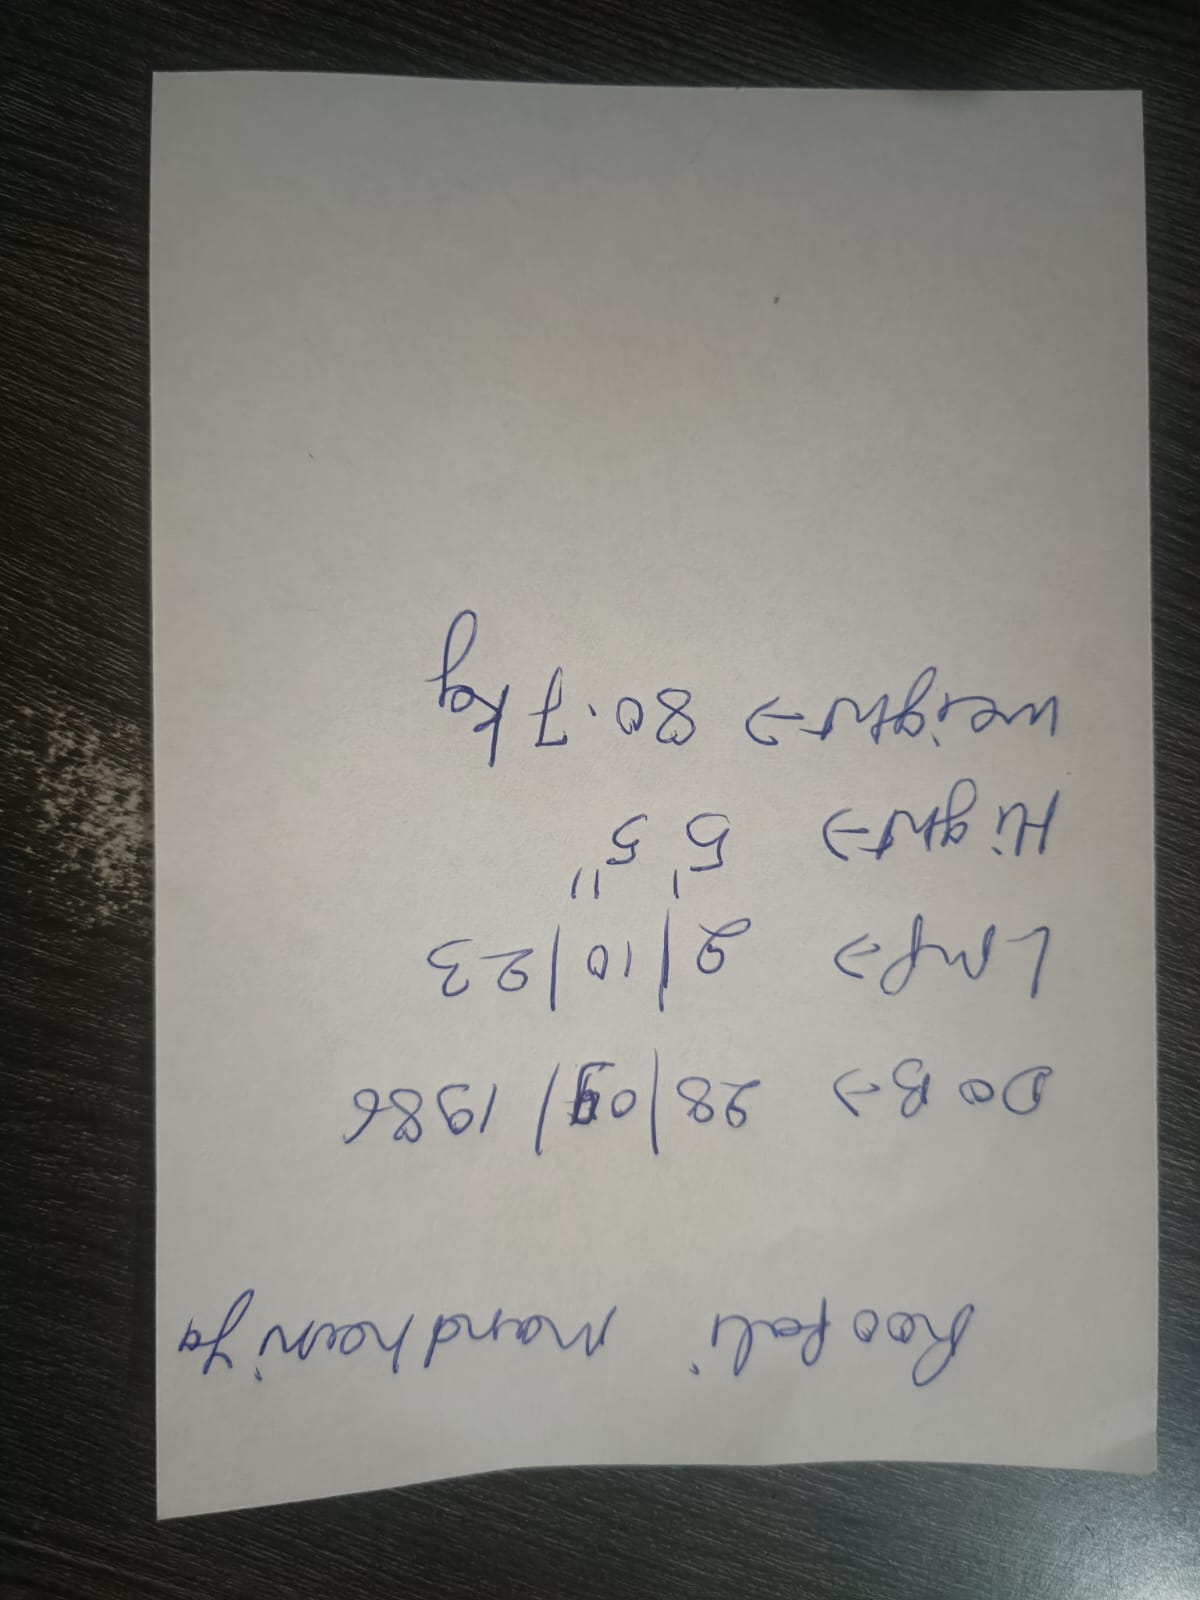 Roopali Mandhaniya
DOB→ 28/09/1986
Lmp→ 2/10/23
Hight→ 5' 5"
weight→ 80.7 kg